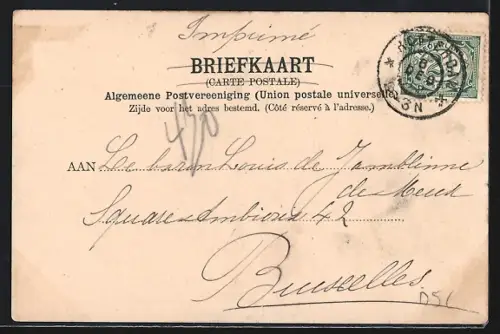 Imprimé
BRIEFKAART
(CARTE POSTALE)
Algemeene Postvereeniging (Union postale universelle)
Zijde voor het adres bestemd. (Côté réservé à l'adresse.)
430
AAN Le baron Louis de Jamblinne
de Meux
Square Ambiorix 42
Bruxelles